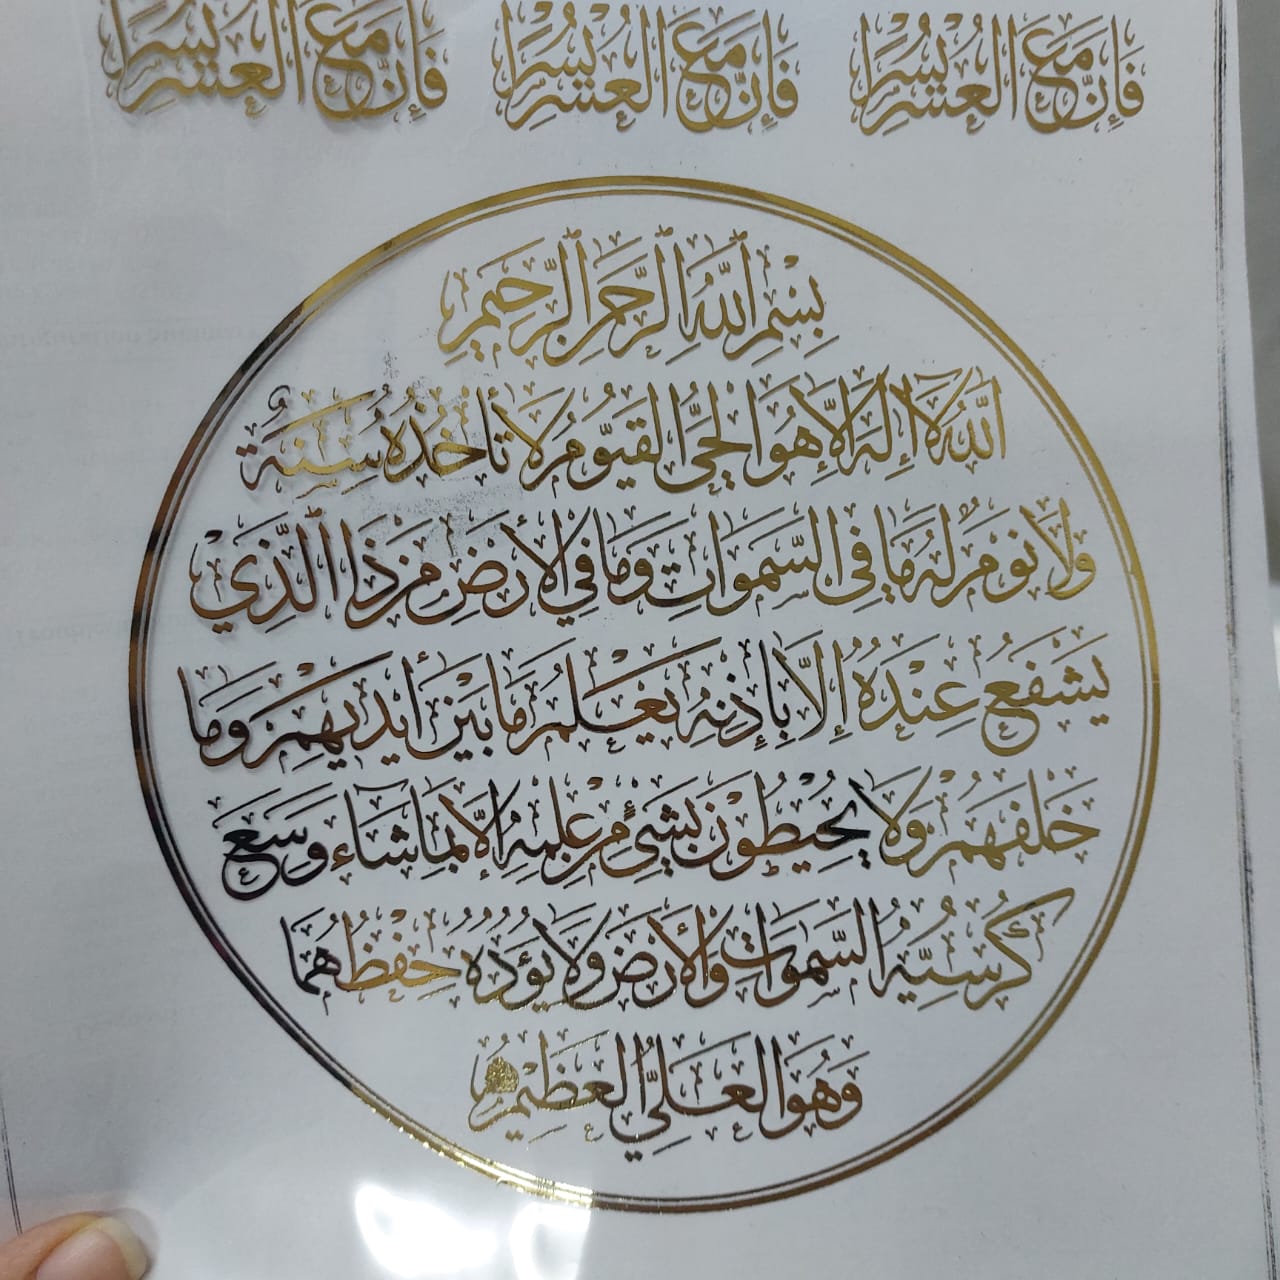 فَإِنَّ مَعَ الْعُسْرِ يُسْرًا
فَإِنَّ مَعَ الْعُسْرِ يُسْرًا
فَإِنَّ مَعَ الْعُسْرِ يُسْرًا
بِسْمِ ٱللَّهِ ٱلرَّحْمَٰنِ ٱلرَّحِيمِ
اللَّهُ لَا إِلَٰهَ إِلَّا هُوَ الْحَيُّ الْقَيُّومُ لَا تَأْخُذُهُ سِنَةٌ
وَلَا نَوْمٌ لَهُ مَا فِي السَّمَوَاتِ وَمَا فِي الْأَرْضِ مَنْ ذَا الَّذِي
يَشْفَعُ عِنْدَهُ إِلَّا بِإِذْنِهِ يَعْلَمُ مَا بَيْنَ أَيْدِيهِمْ وَمَا
خَلْفَهُمْ وَلَا يُحِيطُونَ بِشَيْءٍ مِنْ عِلْمِهِ إِلَّا بِمَا شَاءَ وَسِعَ
كُرْسِيُّهُ السَّمَوَاتِ وَالْأَرْضَ وَلَا يَؤُدُهُ حِفْظُهُمَا
وَهُوَ الْعَلِيُّ الْعَظِيمُ